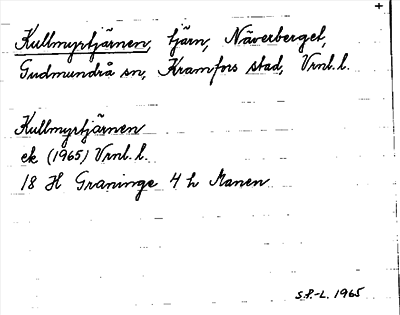 +
Kullmyrtjärnen, tjärn, Näverberget,
Gudmundrå sn, Kramfors stad, Vrnl. l.
Kullmyrtjärnen
ek (1965) Vrnl. l.
18 H Graninge 4 h Manen
S.P.-L. 1965